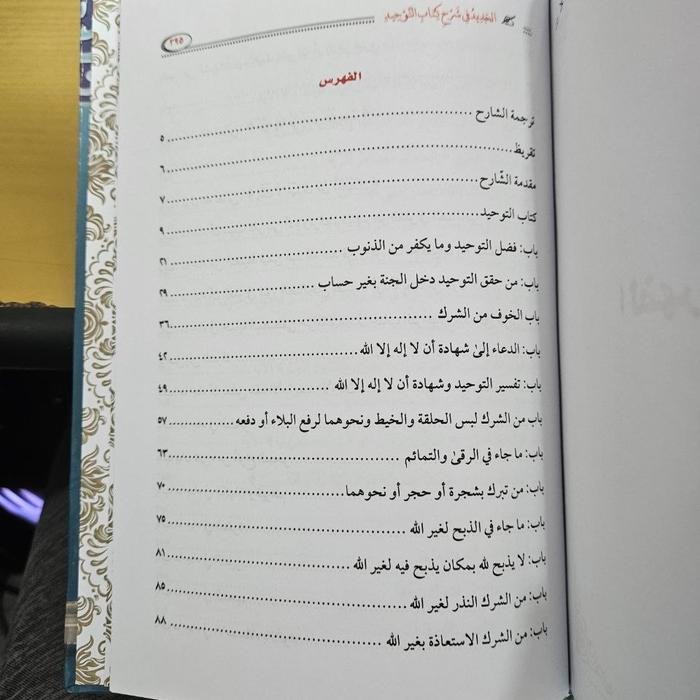 الجديد في شرح كتاب التوحيد
٣٩٥
الفهرس
ترجمة الشارح ........ ٥
تقريظ ........ ٦
مقدمة الشّارح ........ ٧
كتاب التوحيد ........ ٩
باب: فضل التوحيد وما يكفر من الذنوب ........ ٢١
باب: من حقق التوحيد دخل الجنة بغير حساب ........ ٢٩
باب الخوف من الشرك ........ ٣٦
باب: الدعاء إلىٰ شهادة أن لا إله إلا الله ........ ٤٢
باب: تفسير التوحيد وشهادة أن لا إله إلا الله ........ ٤٩
باب من الشرك لبس الحلقة والخيط ونحوهما لرفع البلاء أو دفعه ........ ٥٧
باب: ما جاء في الرقىٰ والتمائم ........ ٦٣
باب: من تبرك بشجرة أو حجر أو نحوهما ........ ٧٠
باب: ما جاء في الذبح لغير الله ........ ٧٥
باب: لا يذبح لله بمكان يذبح فيه لغير الله ........ ٨١
باب: من الشرك النذر لغير الله ........ ٨٥
باب: من الشرك الاستعاذة بغير الله ........ ٨٨